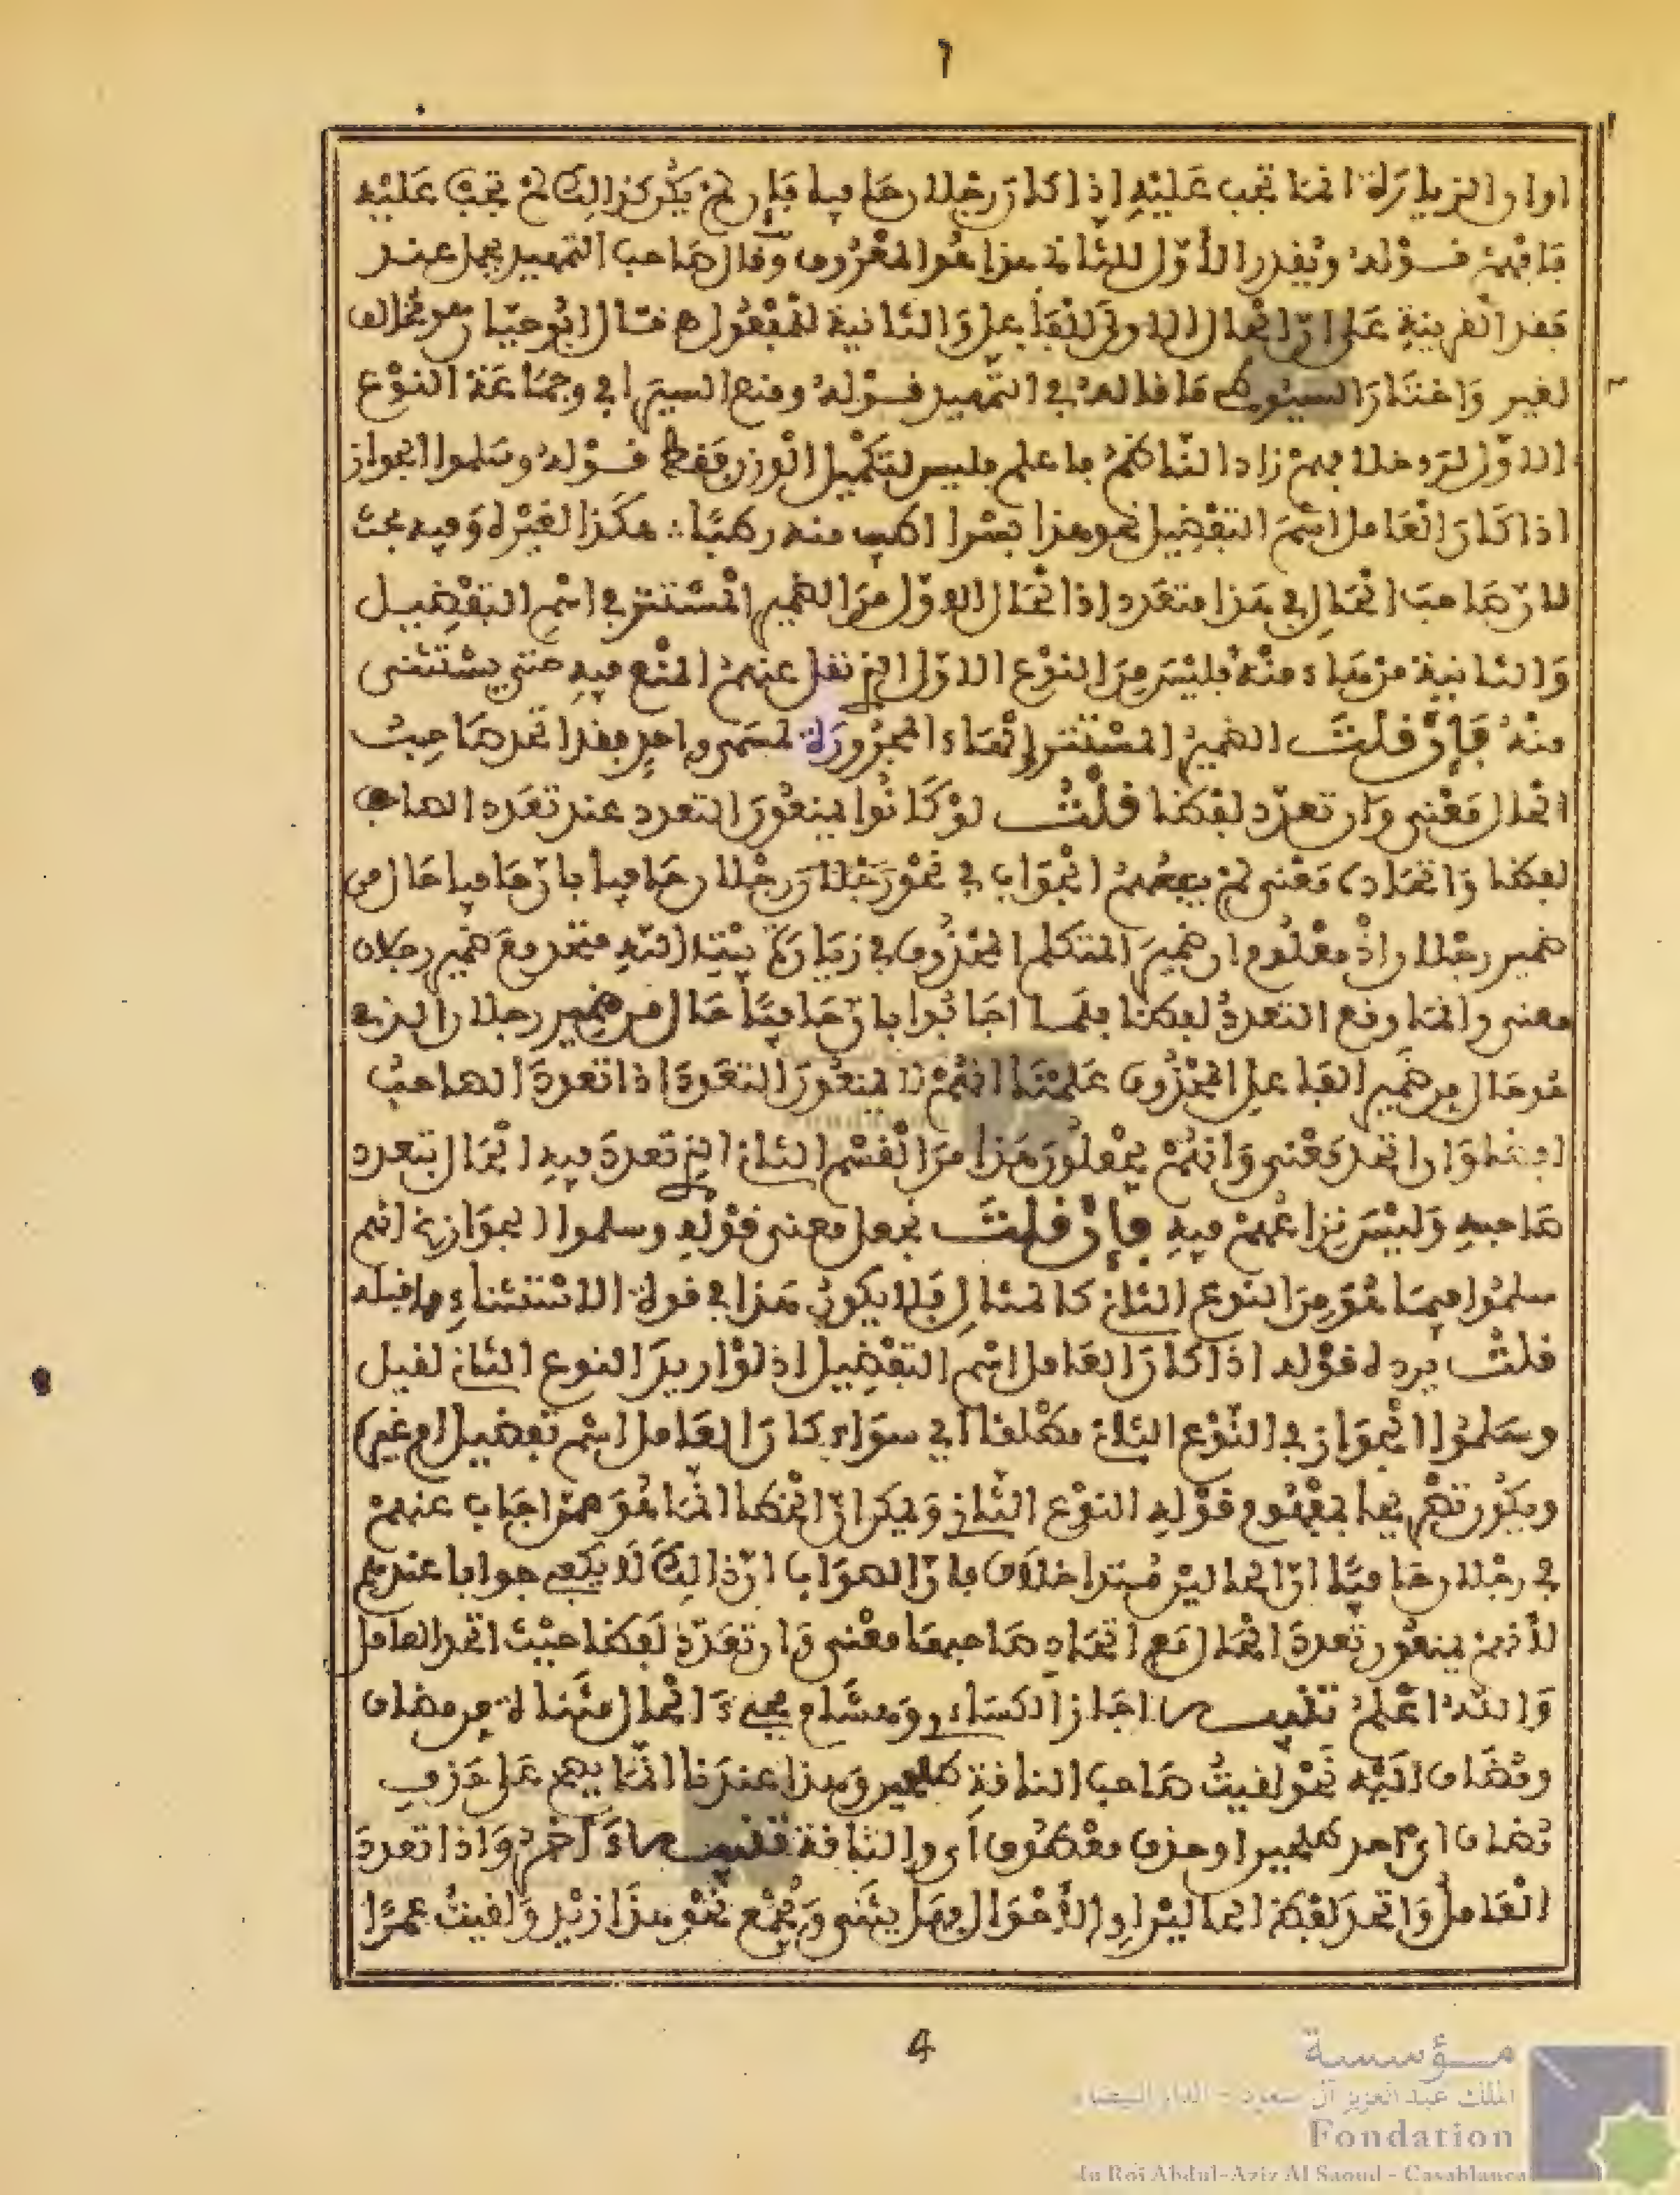 ٦
اوان الزيارة انما تجب عليه إذا كان رجلان حافيا فإن لم يكن كذالك لم تجب عليه
فافهم قوله ويقدر الأول للثاني هذا هو المعروف وقال صاحب التمهيد يحمل عند
فقد القرينة على ان الحال الاولى للفاعل والثانية للمفعول قال ابو حيان
لغير واختار السيوطي ما قاله في التمهيد قوله ومنع السيرافي وجماعة النوع
الاول لتردخلا بهم زاد الناظم ما علم فليس لتكميل الوزن فقط قوله وسلموا الجواز
اذا كان العامل اسم التفضيل نحو هذا بسرا اطيب منه رطبا هكذا لغيره وفيه بحث
لان صاحب الحال في هذا متعدد إذا الحال الاول من الضمير المستتر في اسم التفضيل
والثانية من هاء منه فليس من النوع الاول الذي نقل عنهم المنع فيه حتى يستثنى
منه فإن قلت الضمير المستتر والهاء المجرورة لمسمى واحد فقد اتحد صاحب
الحال معنى وان تعدد لفظا قلت لو كانوا يمنعون التعدد عند تعدد الصاحب
لفظا واتحاده معنى لم ينفعهم الجواب في نحو رجلان ورجلان حافيا بان حافيا حال من
ضمير رجلان إذ معلوم ان ضمير المتكلم المحذوف في زيارة بيت الله متحد مع ضمير رجلان
معنى وانما وقع التعدد لفظا فلما اجابوا بان حافيا حال من ضمير رجلان الذي
هو حال من ضمير الفاعل المحذوف علمنا انهم لا يمنعون التعدد اذا تعدد الصاحب
لفظا وان اتحد معنى وانهم يجعلون هذا من القسم الثاني الذي تعدد فيه الحال بتعدد
صاحبه وليس نزاعهم فيه فإن قلت نجعل معنى قوله وسلموا الجواز انهم
سلموا فيما هو من النوع الثاني كالمثال فلا يكون هذا في قوة الاستثناء مما قبله
قلت يرده قوله اذا كان العامل اسم التفضيل إذ لو اريد النوع الثاني لقيل
وسلموا الجواز في النوع الثاني مطلقا اي سواء كان العامل اسم تفضيل ام غيره
ويكون تصريحا بمفهوم قوله النوع الثاني وليكن ان الخطا انما هو ممن اجاب عنهم
في رجلان حافيا ان الحالين مبتداخلان فان الصواب ان ذالك لا يكفي جوابا عندهم
لأنهم يمنعون تعدد الحال مع اتحاد صاحبها معنى وان تعدد لفظا حيث اتحد العامل
والله اعلم تنبيه اجاز الكساءي وهشام مجيء الحال مثناة من مضاف
ومضاف اليه نحو لقيت صاحب الناقة طليحين وهذا عندنا انما يفهم على حذف
مضاف اي احد طليحين او حذف معطوف أي والناقة تنبيه ءاخر واذا تعدد
العامل واتحد لفظ الحالين او الأحوال فهل يثنى ويجمع نحو هذا زيد ولقيت عمرا
4
مؤسسة
الملك عبد العزيز آل سعود - الدار البيضاء
Fondation
du Roi Abdul-Aziz Al Saoud - Casablanca